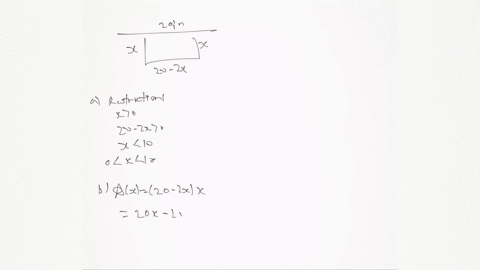 20in
x x
20-2x
a) Restrictions
x>0
20-2x>0
x<10
0<x<10
b) A(x)=(20-2x)x
= 20x-2